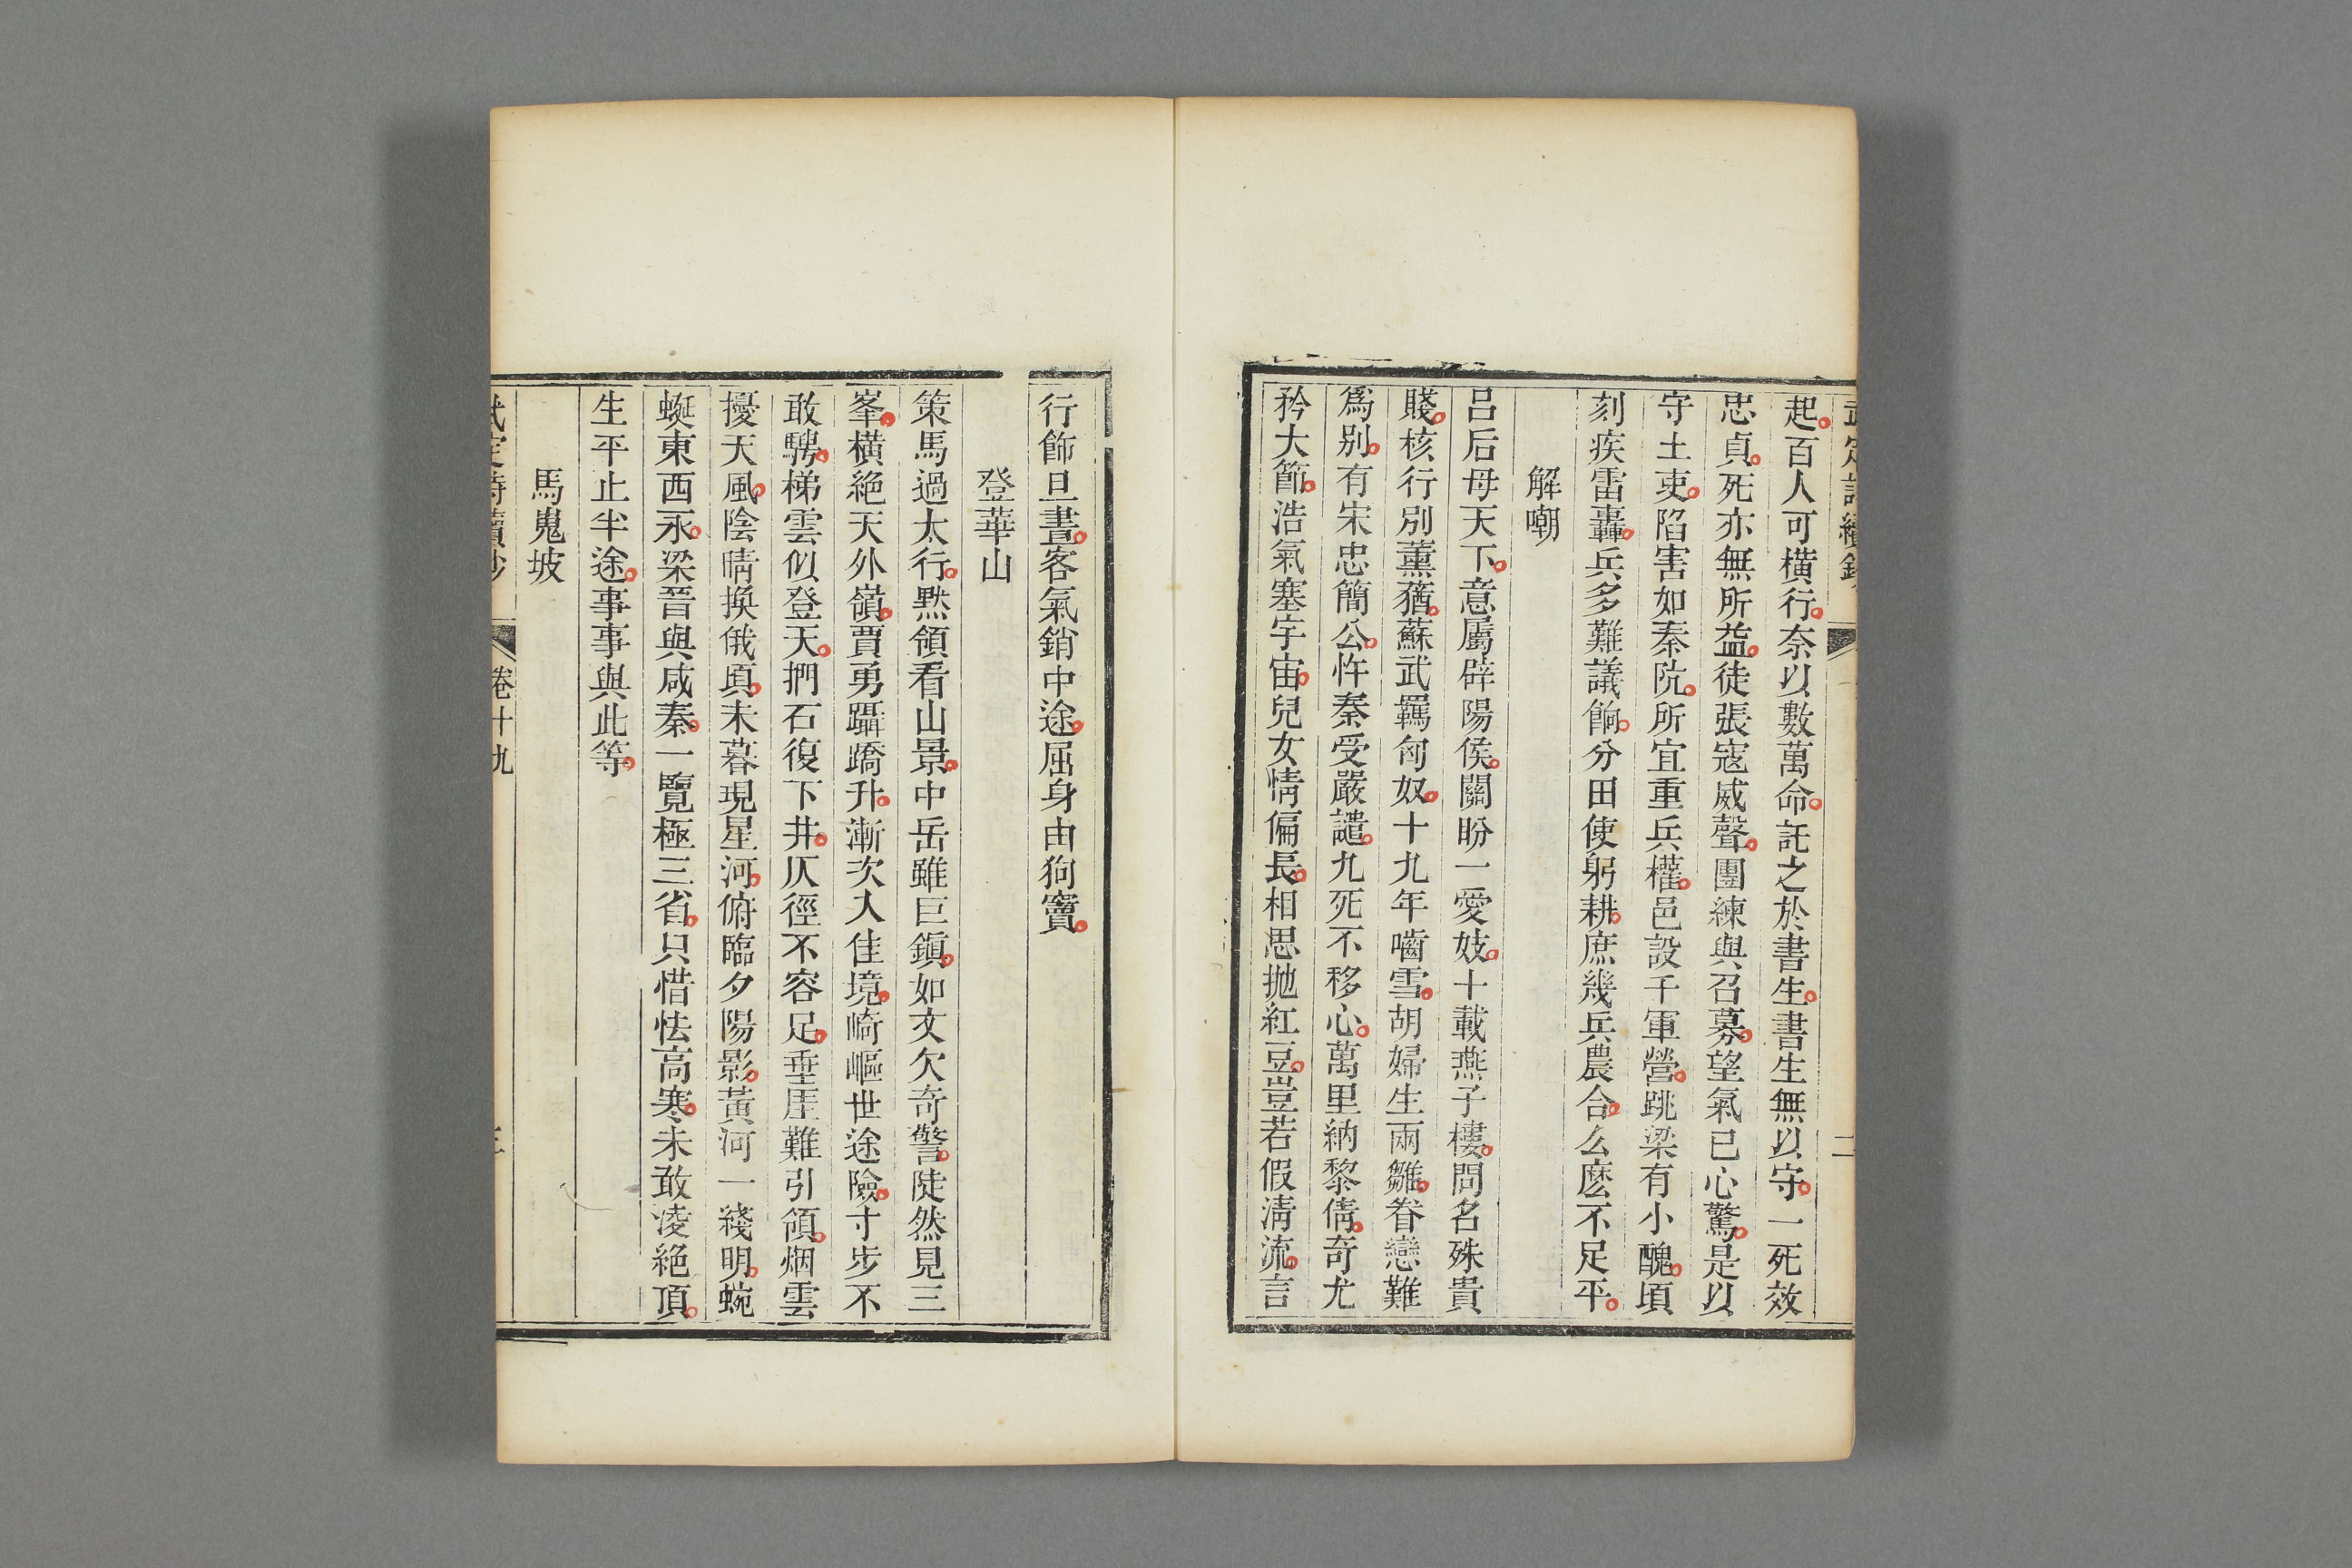 武定詩續鈔
二
起百人可橫行奈以數萬命託之於書生書生無以守一死效
忠貞死亦無所益徒張寇威聲團練與召募望氣已心驚是以
守土吏陷害如秦阬所宜重兵權邑設千軍營跳梁有小醜頃
刻疾雷轟兵多難議餉分田使躬耕庶幾兵農合么麽不足平
解嘲
呂后母天下意屬辟陽侯關盼一愛妓十載燕子樓問名殊貴
賤核行別薰蕕蘇武羈匈奴十九年嚙雪胡婦生兩雛眷戀難
爲别有宋忠簡公忤秦受嚴譴九死不移心萬里納黎倩奇尤
矜大節浩氣塞宇宙兒女情偏長相思抛紅豆豈若假淸流言
行飾旦晝客氣銷中途屈身由狗竇
登華山
策馬過太行㸃領看山景中岳雖巨鎭如文欠奇警陡然見三
峯橫絶天外嶺賈勇躡蹻升漸次入佳境崎嶇世途險寸步不
敢騁梯雲似登天捫石復下井仄徑不容足垂崖難引領烟雲
擾天風陰晴換俄頃未暮現星河俯臨夕陽影黃河一綫明蜿
蜒東西永梁晉與咸秦一覽極三省只惜怯高寒未敢凌絶頂
生平止半途事事與此等
馬嵬坡
武定詩續鈔
卷十九
三